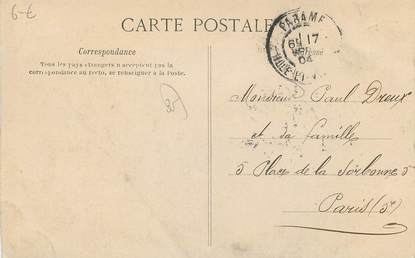 6-€
CARTE POSTALE
Correspondance
Tous les pays étrangers n'acceptent pas la
correspondance au recto, se renseigner à la Poste.
35
PARAMÉ
17
04
Monsieur Paul Dreux
et sa famille
5 Place de la Sorbonne 5
Paris (5e)